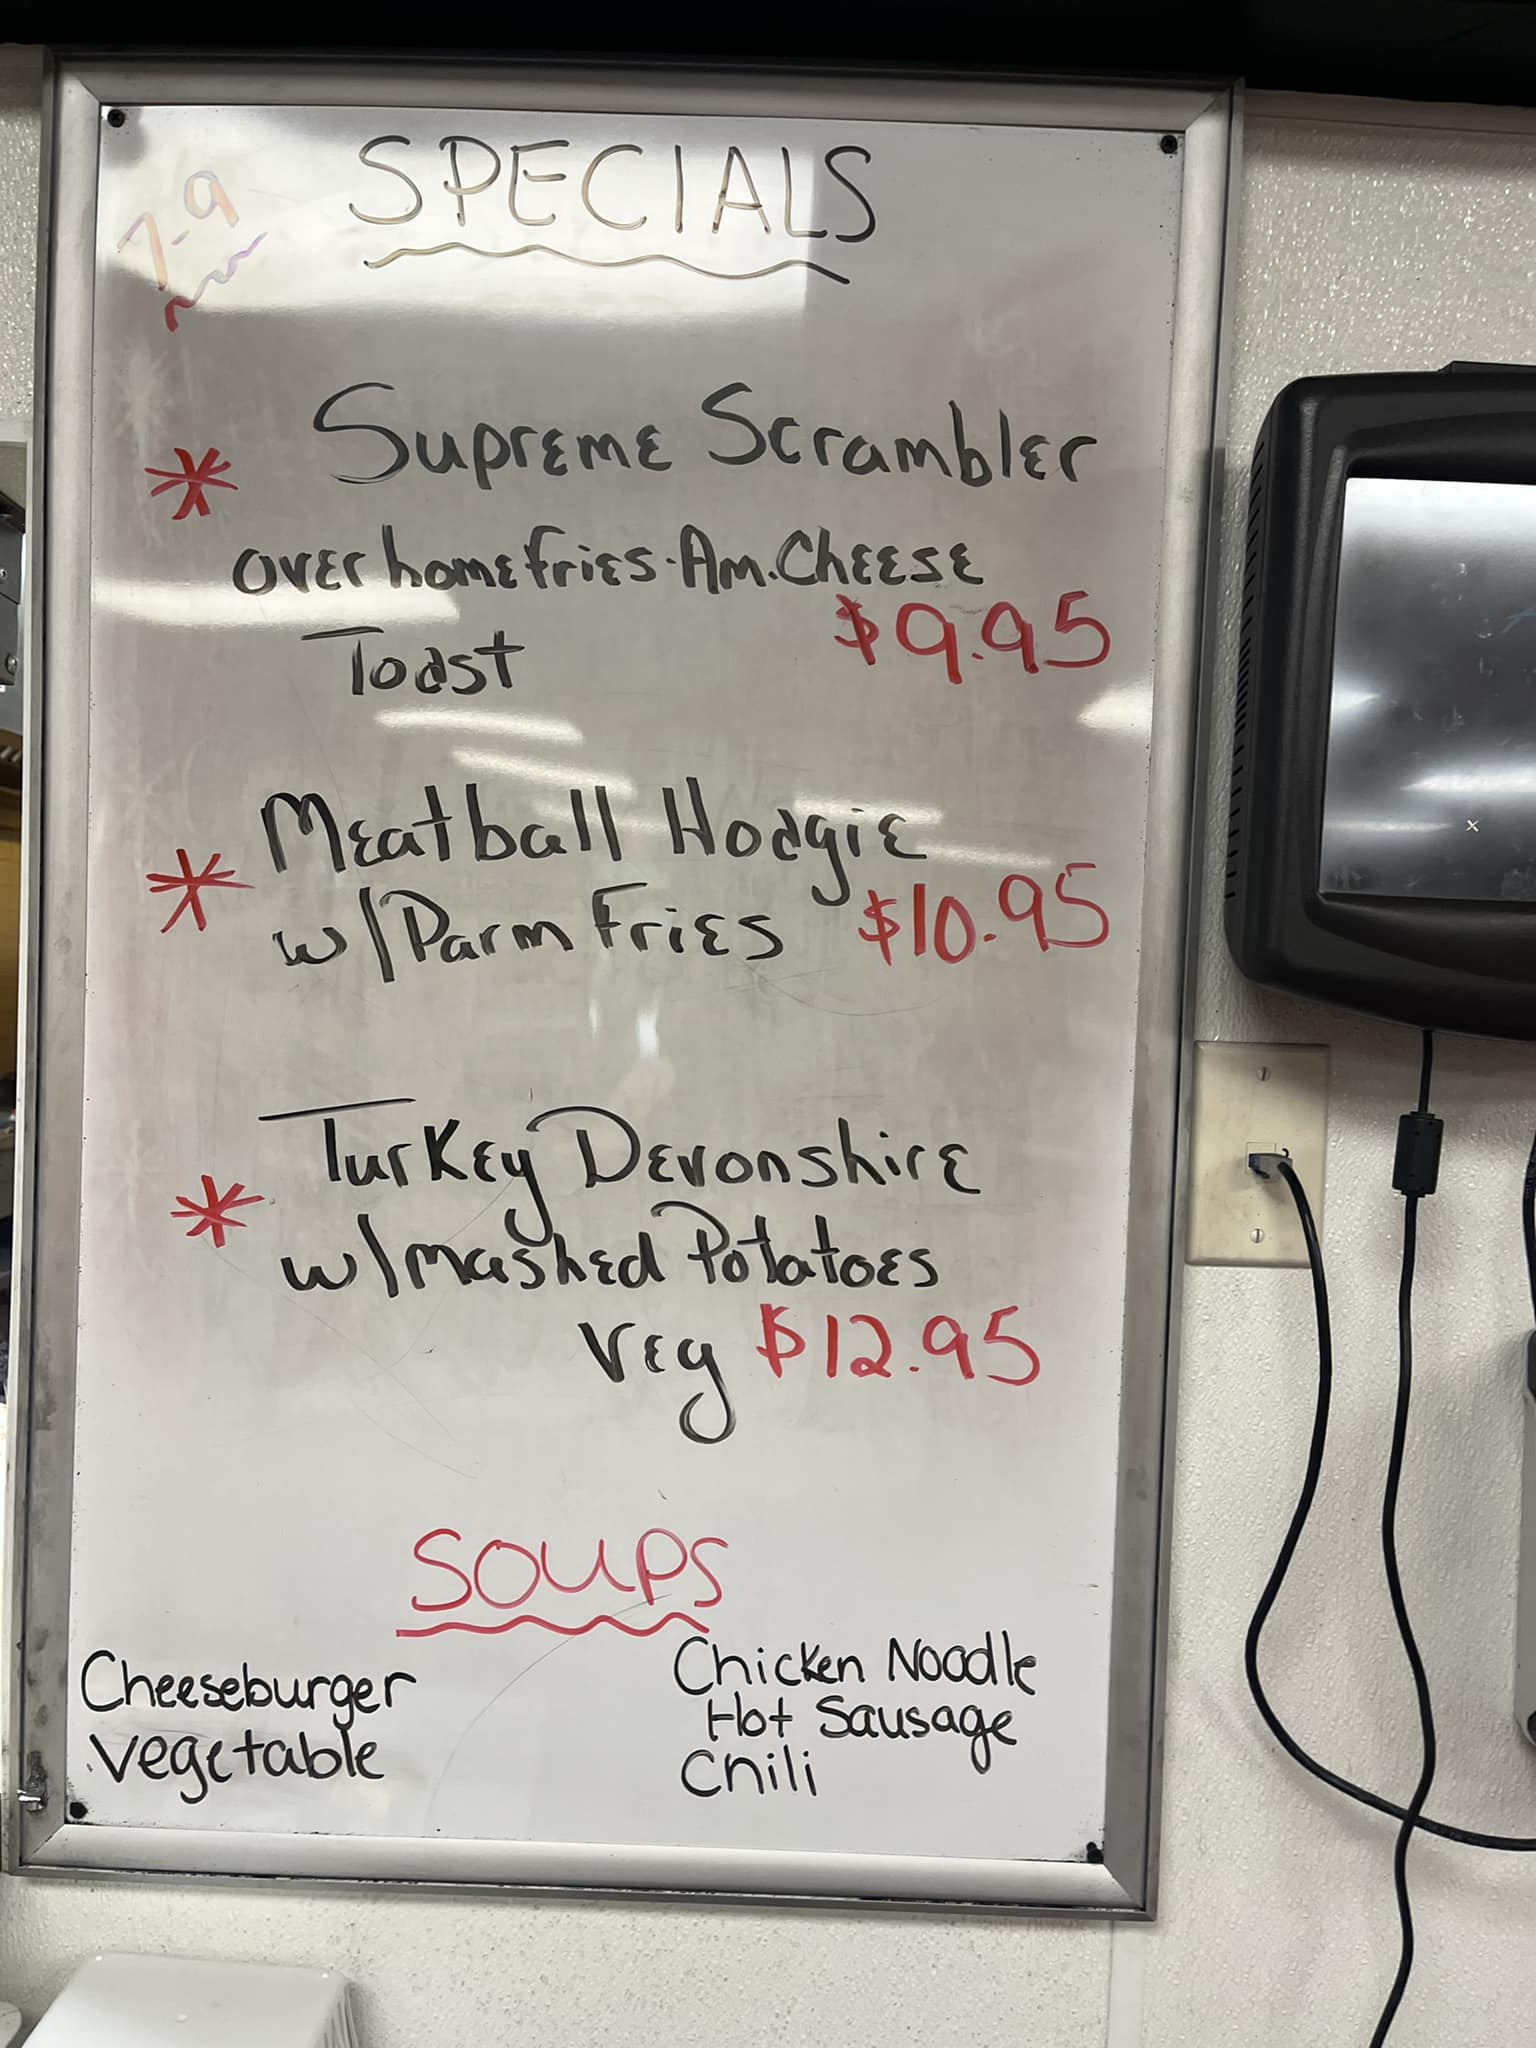 SPECIALS
7-9
* Supreme Scrambler
over homefries. Am. Cheese
Toast $9.95
* Meatball Hoagie
w/Parm Fries $10.95
* Turkey Devonshire
w/mashed Potatoes
Veg $12.95
SOUPS
Cheeseburger
Vegetable
Chicken Noodle
Hot Sausage
Chili